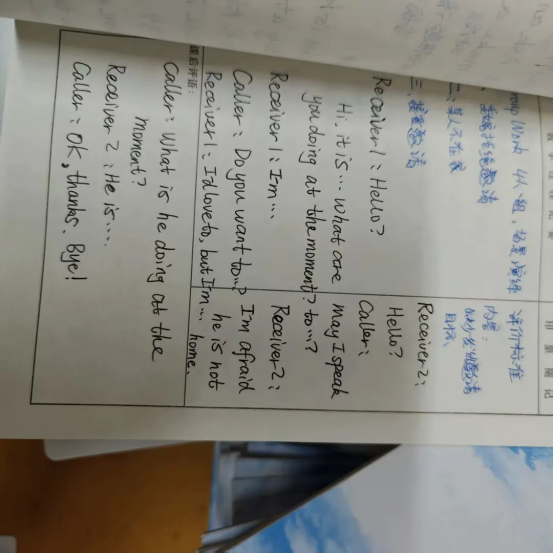 Group Work 4人一组, 场景演练
一、委婉拒绝邀请
二、某人不在家
三、接受邀请
Receiver 1: Hello?
Hi, it is ... What are
you doing at the moment?
Receiver 1: I'm ...
Caller: Do you want to...?
Receiver 1: I'd love to, but I'm ...
评价标准
内容:
Receiver 2:
Hello?
Caller:
May I speak
to...?
Receiver 2:
I'm afraid
he is not
home.
课后评语:
Caller: What is he doing at the
moment?
Receiver 2: He is ....
Caller: OK, thanks. Bye!